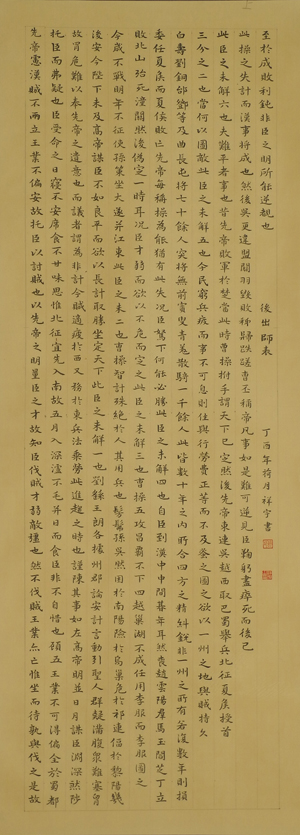 先帝慮漢賊不兩立王業不偏安故托臣以討賊也以先帝之明量臣之才故知臣伐賊才弱敵彊也然不伐賊王業亦亡惟坐而待孰與伐之是故
托臣而弗疑也臣受命之日寢不安席食不甘味思惟北征宜先入南故五月入深瀘不毛并日而食臣非不自惜也顧王業不可得偏全於蜀都
故冒危難以奉先帝之遺意也而議者謂為非計今賊適疲於西又務於東兵法乘勞此進趨之時也謹陳其事如左高帝明並日月謀臣淵深然涉
後安今陛下未及高帝謀臣不如良平而欲以長計取勝坐定天下此臣之未解一也劉繇王朗各據州郡論安計言動引聖人群疑滿腹衆難塞胸
今歲不戰明年不征使孫策坐大遂并江東此臣之未二也曹操智計殊絶於人其用兵也髣髴孫吳然困於南陽險於烏巢危於祁連偪於黎陽幾
敗北山殆死潼關然後偽定一時耳況臣才弱而欲以不危而定之此臣之未解三也曹操五攻昌霸不下四越巢湖不成任用李服而李服圖之
委任夏侯而夏侯敗亡先帝每稱操為能猶有此失況臣駑下何能必勝此臣之未解四也自臣到漢中中間朞年耳然喪趙雲陽羣馬玉閻芝丁立
白壽劉銅郃鄧等及曲長屯將七十餘人突將無前賨叟青羌散騎一千餘人此皆數十年之內所合四方之精糾銳非一州之所有若復數年則損
三分之二也當何以圖敵此臣之未解五也今民窮兵疲而事不可息則住與行勞費正等而不及今圖之欲以一州之地與賊持久
此臣之未解六也夫難平者事也昔先帝敗軍於楚當此時曹操拊手謂天下已定然後先帝東連吳越西取巴蜀舉兵北征夏侯授首
此操之失計而漢事將成也然後吳更違盟關羽毀敗秭歸蹉跌曹丕稱帝凡事如是難可逆見臣鞠躬盡瘁死而後已
至於成敗利鈍非臣之明所能逆覩也
後出師表
丁酉年荷月祥宇書